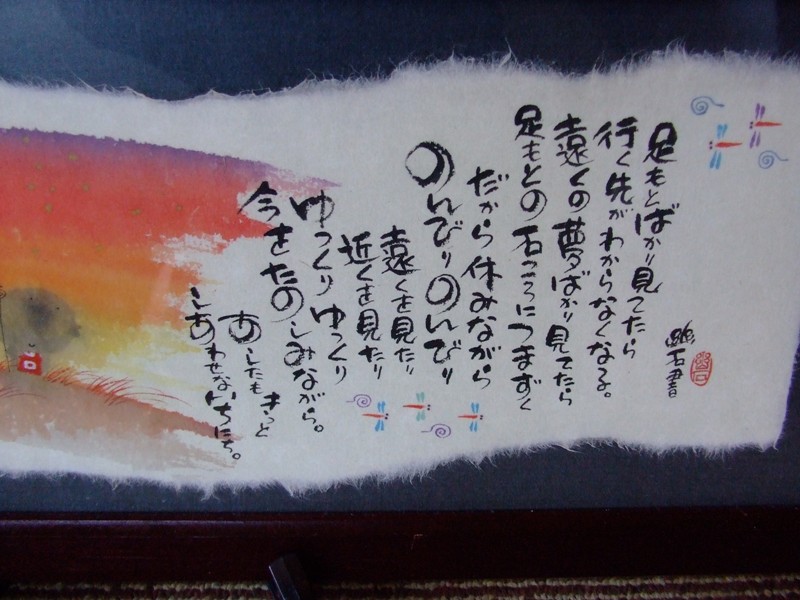 足もとばかり見てたら
行く先がわからなくなる。
遠くの夢ばかり見てたら
足もとの石ころにつまずく
だから休みながら
のんびりのんびり
遠くを見たり
近くを見たり
ゆっくりゆっくり
今をたのしみながら。
あしたも きっと
しあわせないちにち。
石書